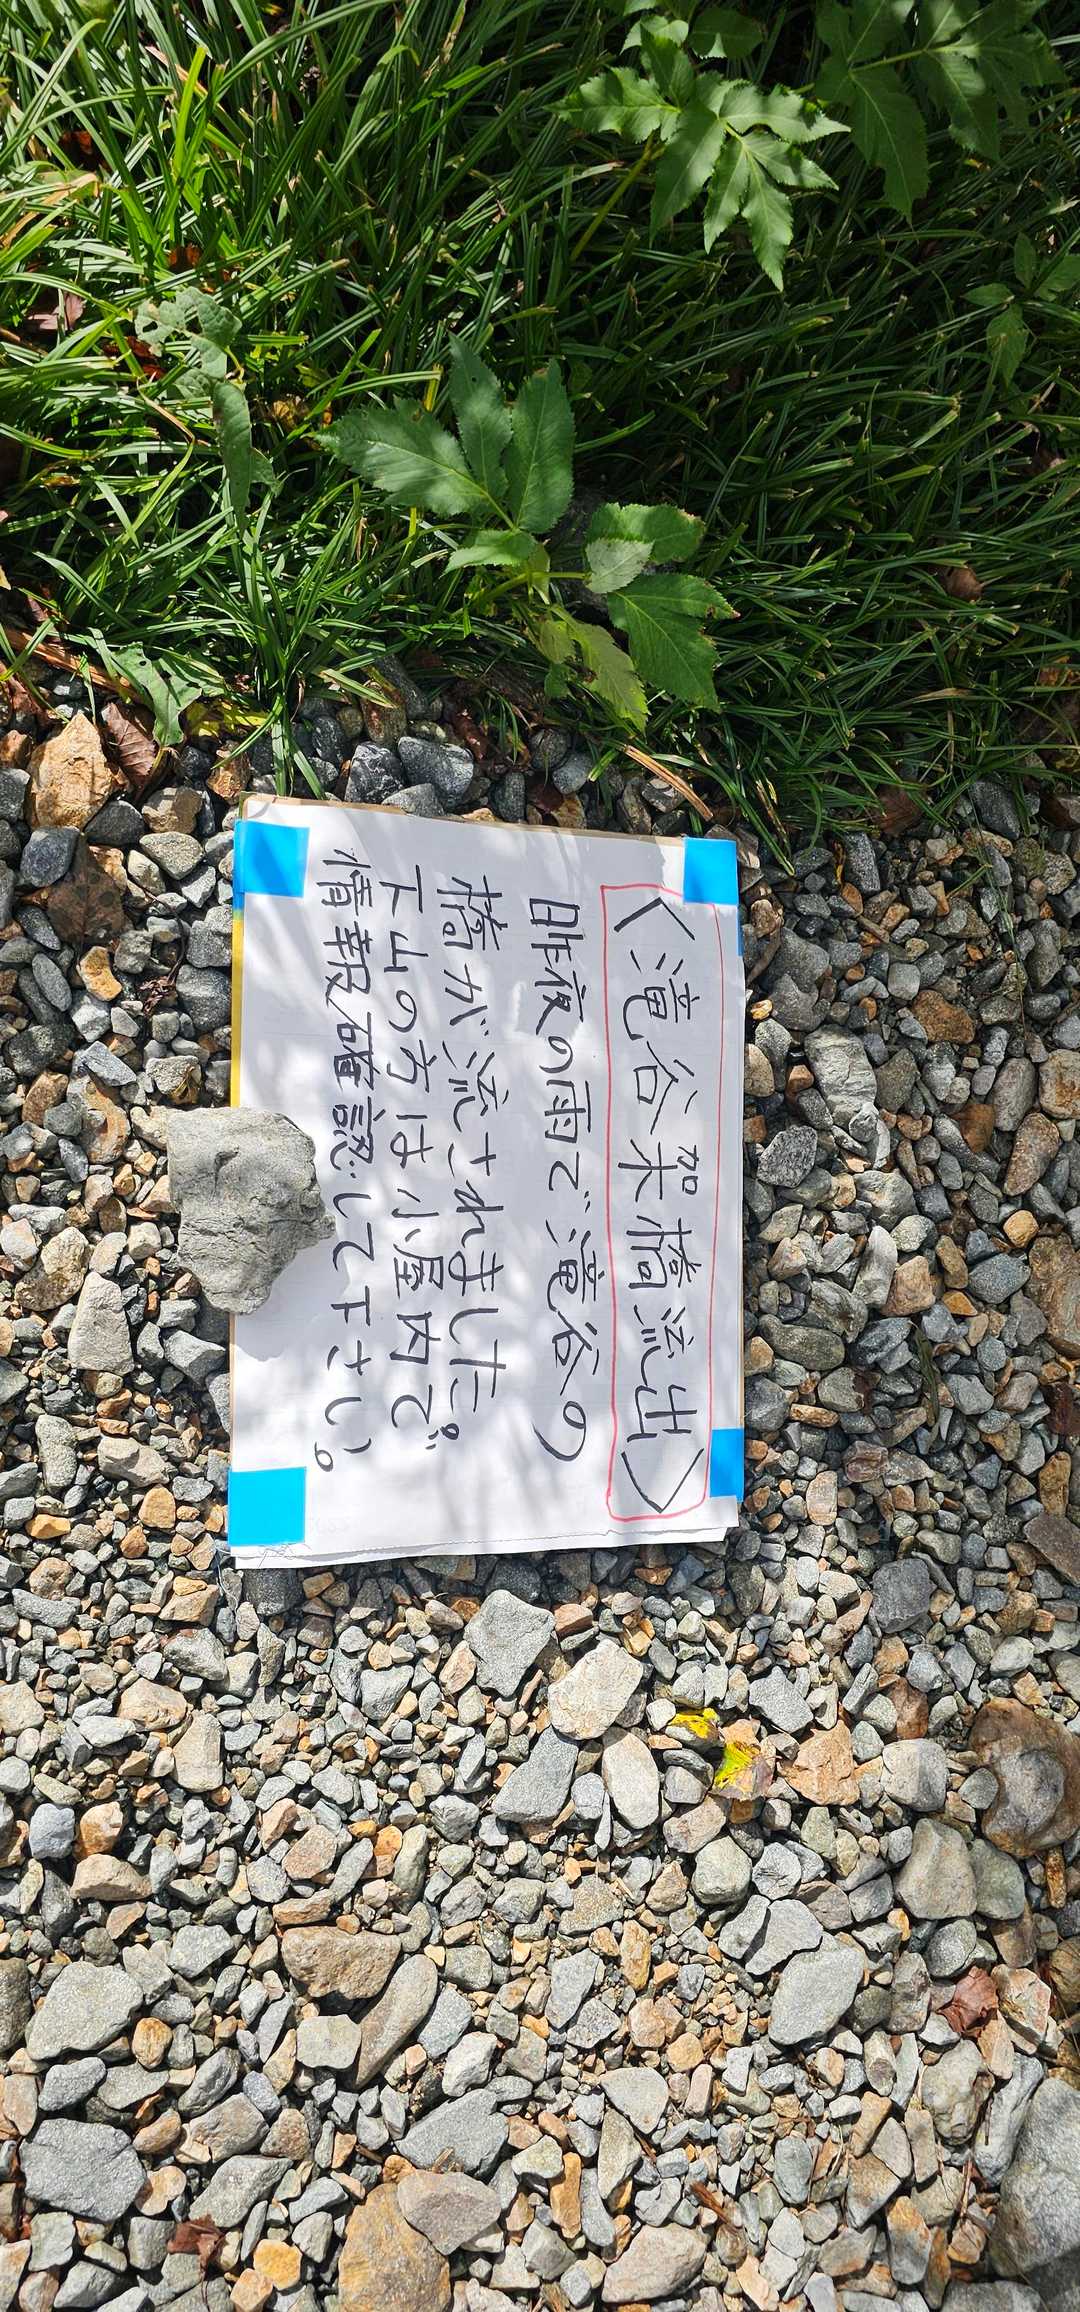 〈滝谷架橋流出〉
昨夜の雨で滝谷の
橋が流されました。
下山の方は小屋内で
情報確認して下さい。